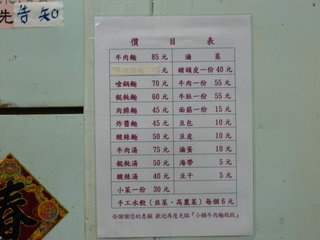 先告知
價目表
牛肉麵 85元 滷菜
元 豬頭皮一份 40元
嗆鍋麵 70元 牛肉一份 55元
餛飩麵 60元 牛肚一份 55元
肉絲麵 45元 麵筋一份 15元
炸醬麵 45元 豆包 10元
酸辣麵 50元 豆皮 10元
牛肉湯 75元 滷蛋 10元
餛飩湯 50元 海帶 5元
酸辣湯 40元 豆干 5元
小菜一份 30元
手工水餃(韭菜、高麗菜)每個6元
※謝謝您的惠顧 歡迎再度光臨『小騎牛肉麵敬啟』
春